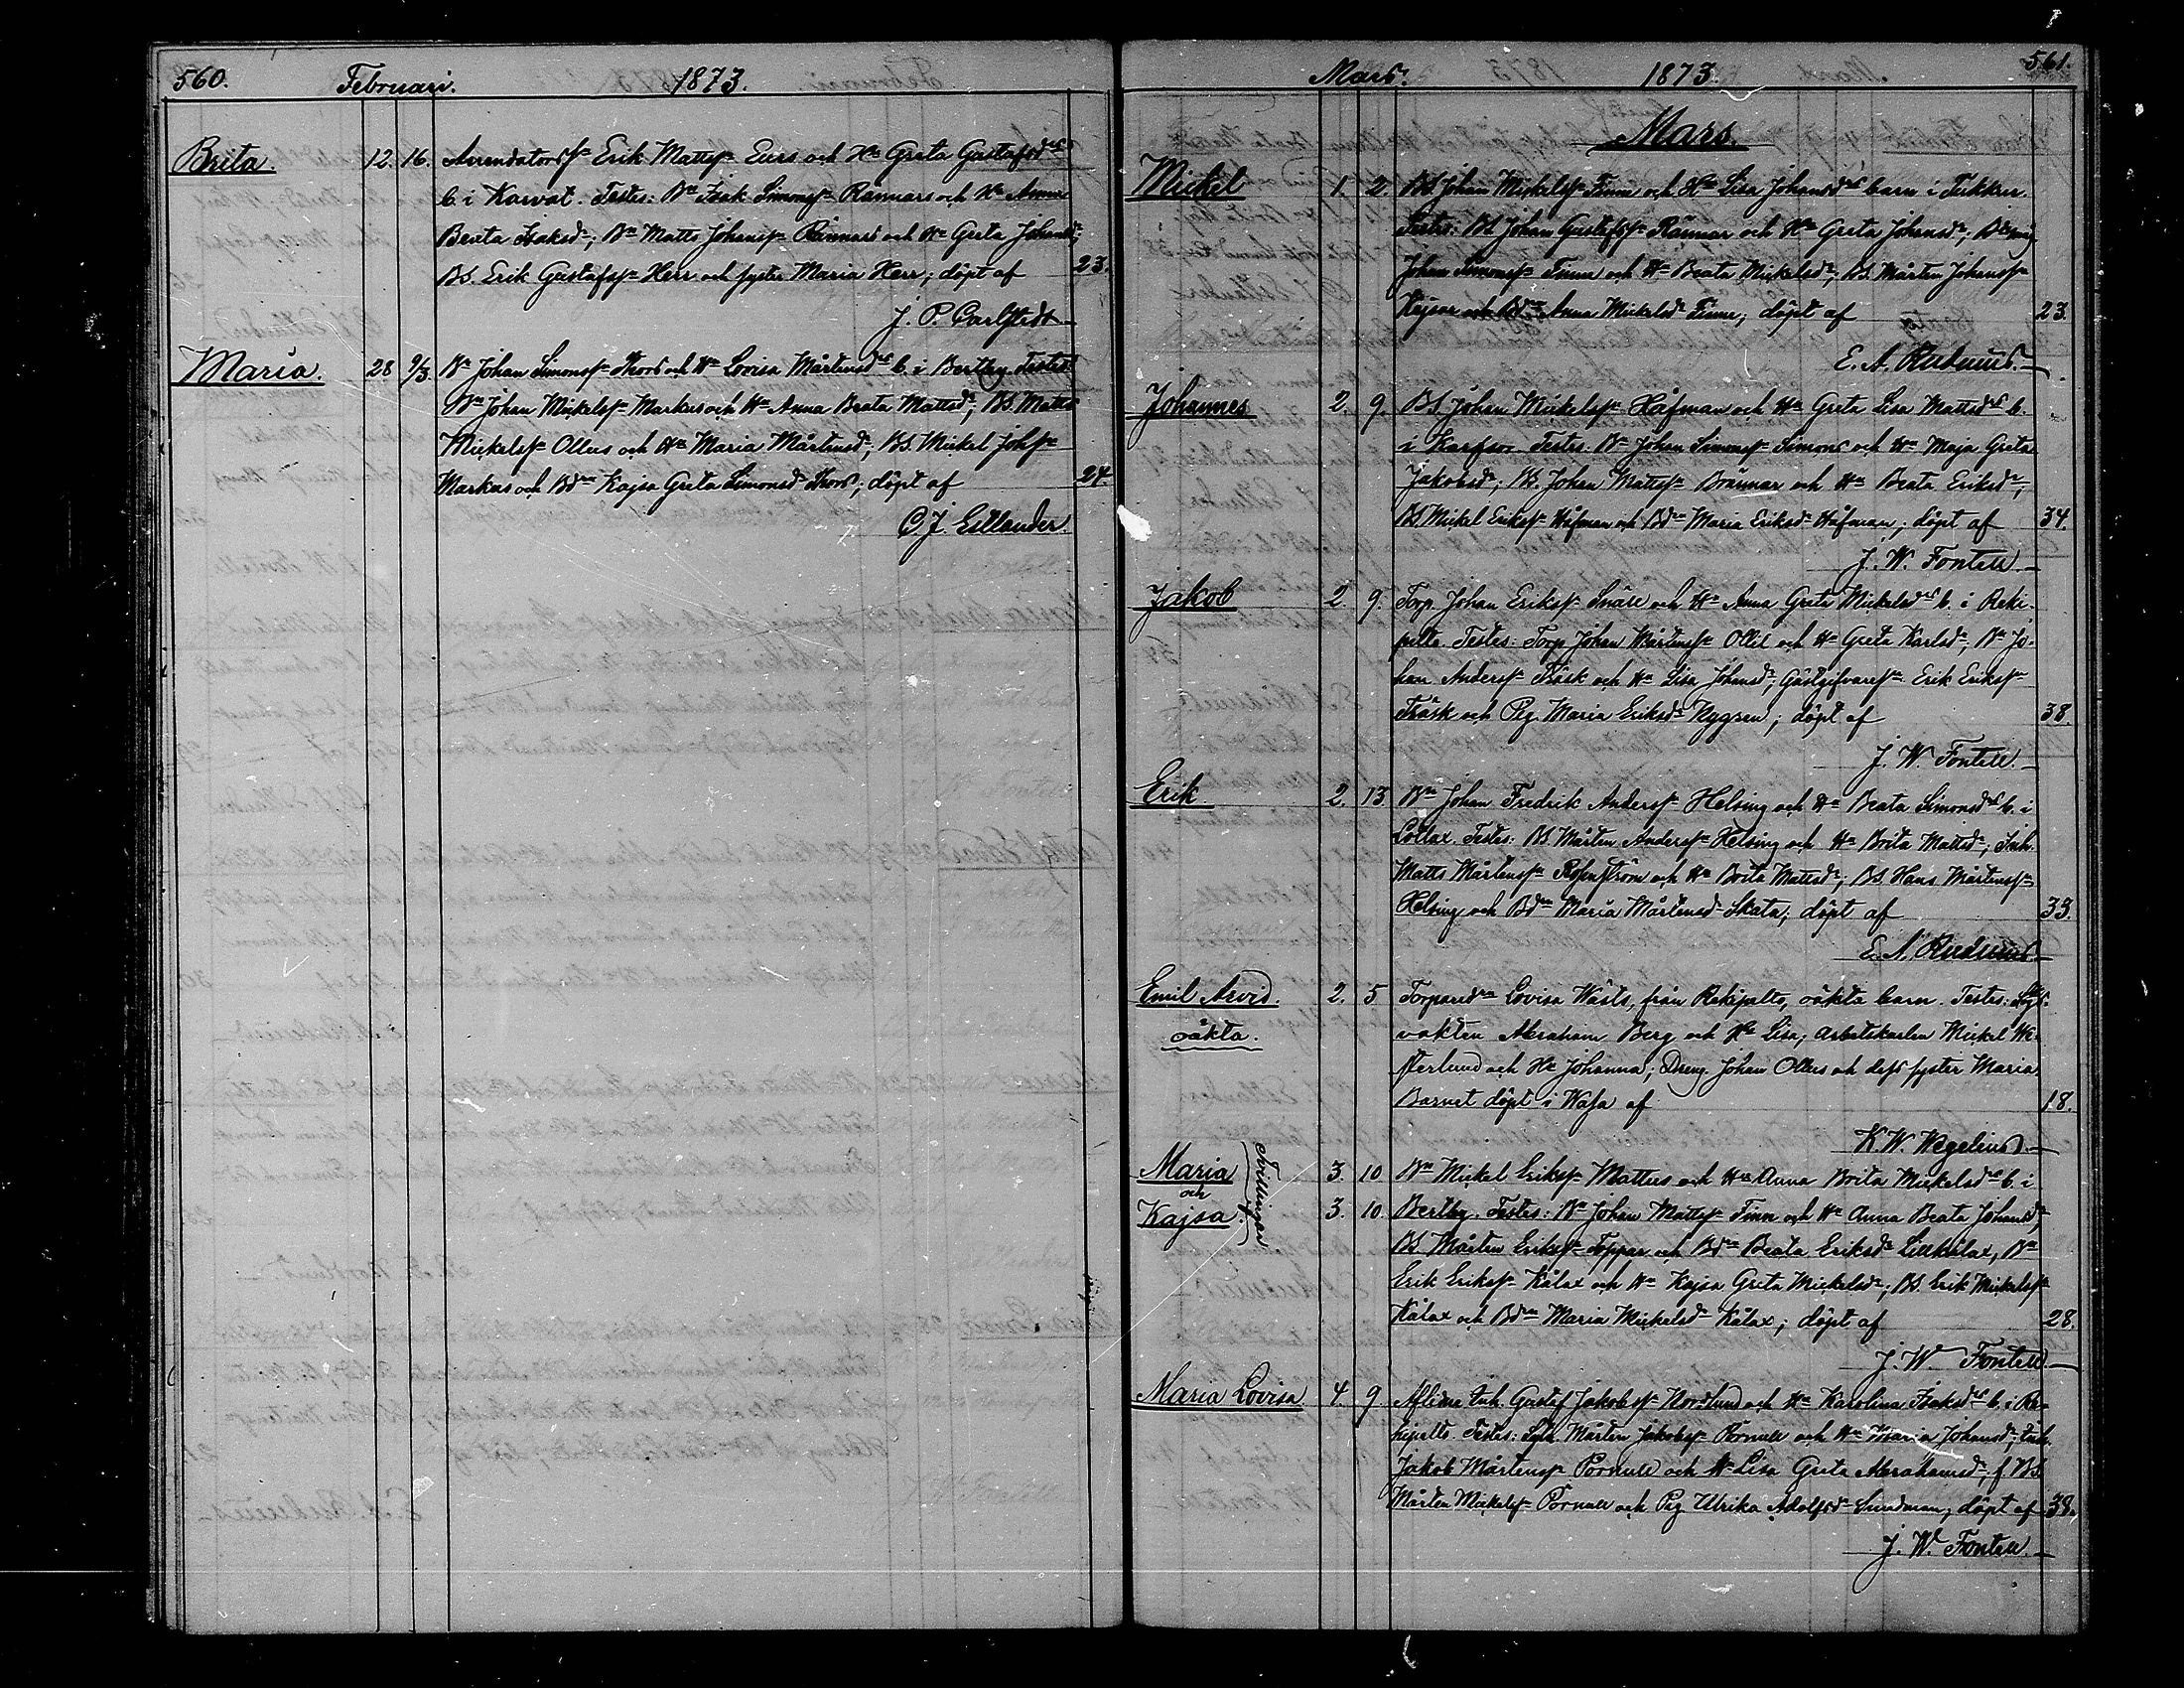 560. Februari. 1873.
Brita. 12. 16. Arrendators sn Erik Mattssn Eurs och Hu Greta Gustafsds
b. i Karvat. Testes: Bn Isak Simonssn Rännars och Hu Anna
Beata Isaksdr; Bn Matts Johanssn Rännars och Hu Greta Johansdr;
BS. Erik Gustafssn Herr och syster Maria Herr; döpt af 23.
J. P. Carlstedt.
Maria. 28 9/3. Bn Johan Simonssn Thors och Hu Lovisa Mårtensds b. i Bertby. Testes:
Bn Johan Mickelssn Markus och Hu Anna Beata Mattsdr; BS. Matts
Mickelssn Ollus och Hu Maria Mårtensdr; BS. Mickel Johssn
Markus och Bdrn Kajsa Greta Simonsdr Thors; döpt af 24
C. J. Estlander.
Mars. 1873. 561.
Mars.
Mickel 1. 2 BS. Johan Mickelssn Finne och Hu Lisa Johansds barn i
Testes: BS. Johan Gustafssn Rännar och Hu Greta Johansdr;
Johan Simonssn Finne och Hu Beata Mickelsdr; BS. Mårten Johanssn
Kejsar och Bdrn Anna Mickelsdr Finne; döpt af 23.
E. A. Rudenius.
Johannes 2. 9. BS. Johan Mickelssn Håfman och Hu Greta Lisa Mattsds b.
i Karfsor. Testes. Bn Johan Simonssn Simons och Hu Maja Greta
Jakobsdr; BS. Johan Mattssn Brännar och Hu Beata Eriksdr;
BS. Mickel Erikssn Håfman och Bdrn Maria Eriksdr Håfman; döpt af 34.
J. W. Fontell.
Jakob 2. 9. Torp. Johan Erikssn Snäll och Hu Anna Greta Mickelsds b. i Reki-
pelto. Testes: Torp. Johan Mårtenssn Ollil och Hu Greta Karlsdr; Bn Jo-
han Anderssn Träsk och Hu Lisa Johansdr; Gästgifvaressn Erik Erikssn
Träsk och Pig. Maria Eriksdr Nygren; döpt af 38.
J. W. Fontell.
Erik 2. 13 Bn Johan Fredrik Anderssn Helsing och Hu Beata Simonsds b. i
Lotlax. Testes: BS. Mårten Anderssn Helsing och Hu Brita Mattsdr; Inh.
Matts Mårtenssn Rosenström och Hu Brita Mattsdr; BS. Hans Mårtenssn
Helsing och Bdrn Maria Mårtensdr Skata; döpt af 33.
E. A. Rudenius.
Emil Arvid. 2. 5 Torparedrn Lovisa Wästs, från Rekipelto, oäkta barn. Testes:
oäkta. vakten Abraham Berg och Hu Lisa; arbetskarlen Mickel We-
sterlund och Hu Johanna; Dreng. Johan Ollus och dess syster Maria.
Barnet döpt i Wasa af 18.
K. W. Wegelius.
Maria 3. 10 Bn Mickel Erikssn Mattus och Hu Anna Brita Mickelsds b. i
och
Kajsa. Tvillingar 3. 10. Bertby. Testes: Bn Johan Mattssn Finn och Hu Anna Beata Johansdr;
BS. Mårten Erikssn Toppar och Bdrn Beata Eriksdr Lillkålax; Bn
Erik Erikssn Kålax och Hu Kajsa Greta Mickelsdr; BS. Erik Mickelssn
Kålax och Bdrn Maria Mickelsdr Kålax; döpt af 28.
J. W. Fontell.
Maria Lovisa 4. 9. Aflidne Inh. Gustaf Jakobssn Nordlund och Hu Karolina Isaksds b. i Re-
kipelto. Testes: Mårten Jakobssn Pörnull och Hu Maria Johansdr; Inh.
Jakob Mårtenssn Pörnull och Hu Lisa Greta Abrahamsdr; f. BS.
Mårten Mickelssn Pörnull och Pig. Ulrika Adolfsdr Sundman; döpt af 38.
J. W. Fontell.